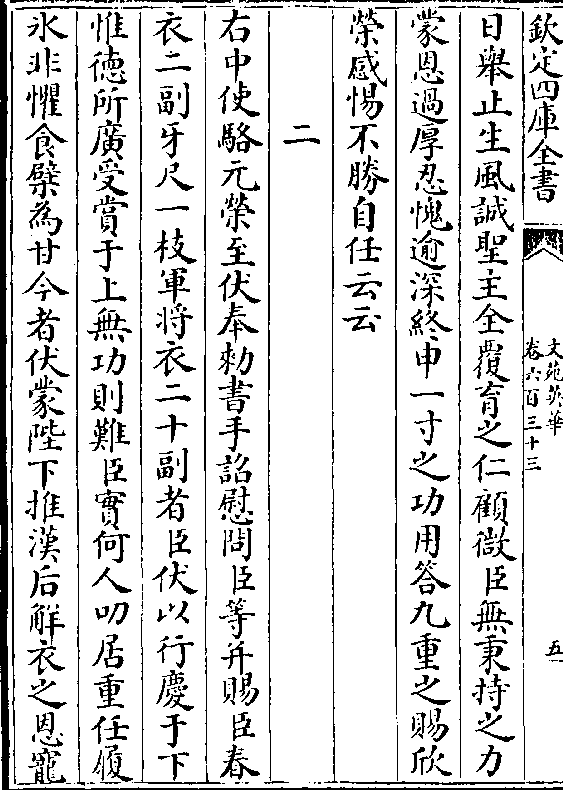 欽定四庫全書
文苑英華
卷六百三十三
五
日舉止生風誠聖主全覆育之仁顧微臣無秉持之力
蒙恩過厚忍愧逾深終申一寸之功用答九重之賜欣
榮感惕不勝自任云云
二
右中使駱元榮至伏奉勅書手詔慰問臣等并賜臣春
衣二副牙尺一枝軍将衣二十副者臣伏以行慶于下
惟德所廣受賞于上無功則難臣實何人叨居重任履
氷非懼食檗為甘今者伏蒙陛下推漢后解衣之恩寵